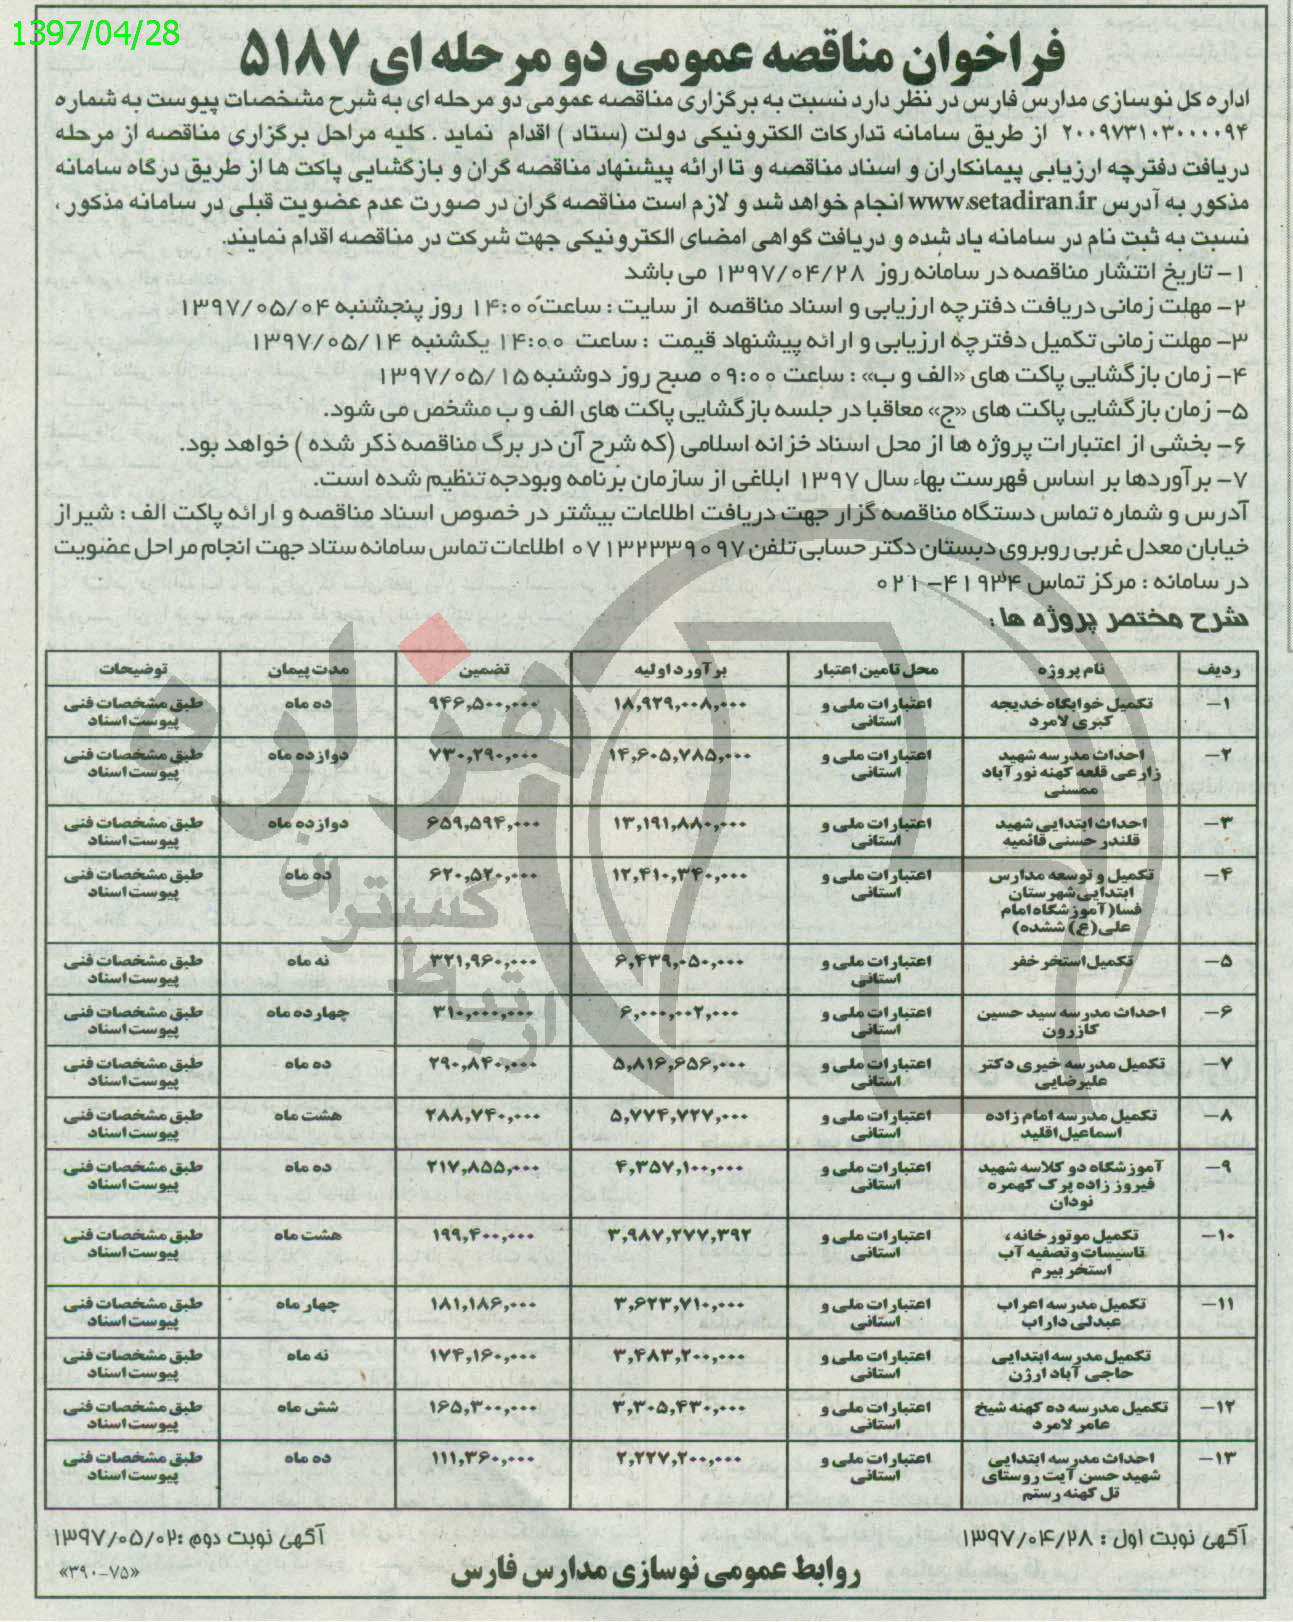 1397/04/28
فراخوان مناقصه عمومی دو مرحله ای ۵۱۸۷
اداره کل نوسازی مدارس فارس در نظر دارد نسبت به برگزاری مناقصه عمومی دو مرحله ای به شرح مشخصات پیوست به شماره
۲۰۰۹۷۳۱۰۳۰۰۰۰۹۴ از طریق سامانه تدارکات الکترونیکی دولت (ستاد) اقدام نماید . کلیه مراحل برگزاری مناقصه از مرحله
دریافت دفترچه ارزیابی پیمانکاران و اسناد مناقصه و تا ارائه پیشنهاد مناقصه گران و بازگشایی پاکت ها از طریق درگاه سامانه
مذکور به آدرس www.setadiran.ir انجام خواهد شد و لازم است مناقصه گران در صورت عدم عضویت قبلی در سامانه مذکور ،
نسبت به ثبت نام در سامانه یاد شده و دریافت گواهی امضای الکترونیکی جهت شرکت در مناقصه اقدام نمایند.
۱- تاریخ انتشار مناقصه در سامانه روز ۱۳۹۷/۰۴/۲۸ می باشد
۲- مهلت زمانی دریافت دفترچه ارزیابی و اسناد مناقصه از سایت : ساعت ۱۴:۰۰ روز پنجشنبه ۱۳۹۷/۰۵/۰۴
۳- مهلت زمانی تکمیل دفترچه ارزیابی و ارائه پیشنهاد قیمت : ساعت ۱۴:۰۰ یکشنبه ۱۳۹۷/۰۵/۱۴
۴- زمان بازگشایی پاکت های «الف و ب» : ساعت ۰۹:۰۰ صبح روز دوشنبه ۱۳۹۷/۰۵/۱۵
۵- زمان بازگشایی پاکت های «ج» معاقبا در جلسه بازگشایی پاکت های الف و ب مشخص می شود.
۶- بخشی از اعتبارات پروژه ها از محل اسناد خزانه اسلامی (که شرح آن در برگ مناقصه ذکر شده ) خواهد بود.
۷- برآوردها بر اساس فهرست بهاء سال ۱۳۹۷ ابلاغی از سازمان برنامه وبودجه تنظیم شده است.
آدرس و شماره تماس دستگاه مناقصه گزار جهت دریافت اطلاعات بیشتر در خصوص اسناد مناقصه و ارائه پاکت الف : شیراز
خیابان معدل غربی روبروی دبستان دکتر حسابی تلفن ۰۷۱۳۲۳۳۹۰۹۷ اطلاعات تماس سامانه ستاد جهت انجام مراحل عضویت
در سامانه : مرکز تماس ۴۱۹۳۴- ۰۲۱
شرح مختصر پروژه ها :
ردیف نام پروژه محل تامین اعتبار برآورد اولیه تضمین مدت پیمان توضیحات
۱- تکمیل خوابگاه خدیجه اعتبارات ملی و ۱۸,۹۲۹,۰۰۸,۰۰۰ ۹۴۶,۵۰۰,۰۰۰ ده ماه طبق مشخصات فنی
کبری لامرد استانی پیوست اسناد
۲- احداث مدرسه شهید اعتبارات ملی و ۱۴,۶۰۵,۷۸۵,۰۰۰ ۷۳۰,۲۹۰,۰۰۰ دوازده ماه طبق مشخصات فنی
زارعی قلعه کهنه نورآباد استانی پیوست اسناد
ممسنی
۳- احداث ابتدایی شهید اعتبارات ملی و ۱۳,۱۹۱,۸۸۰,۰۰۰ ۶۵۹,۵۹۴,۰۰۰ دوازده ماه طبق مشخصات فنی
قلندر حسنی قائمیه استانی پیوست اسناد
۴- تکمیل و توسعه مدارس اعتبارات ملی و ۱۲,۴۱۰,۳۴۰,۰۰۰ ۶۲۰,۵۲۰,۰۰۰ ده ماه طبق مشخصات فنی
ابتدایی شهرستان استانی پیوست اسناد
فسا(آموزشگاه امام
علی(ع) ششده)
۵- تکمیل استخر خفر اعتبارات ملی و ۶,۴۳۹,۰۵۰,۰۰۰ ۳۲۱,۹۶۰,۰۰۰ نه ماه طبق مشخصات فنی
استانی پیوست اسناد
۶- احداث مدرسه سید حسین اعتبارات ملی و ۶,۰۰۰,۰۰۲,۰۰۰ ۳۱۰,۰۰۰,۰۰۰ چهارده ماه طبق مشخصات فنی
کازرون استانی پیوست اسناد
۷- تکمیل مدرسه خیری دکتر اعتبارات ملی و ۵,۸۱۶,۶۵۶,۰۰۰ ۲۹۰,۸۴۰,۰۰۰ ده ماه طبق مشخصات فنی
علیرضایی استانی پیوست اسناد
۸- تکمیل مدرسه امام زاده اعتبارات ملی و ۵,۷۷۴,۷۲۷,۰۰۰ ۲۸۸,۷۴۰,۰۰۰ هشت ماه طبق مشخصات فنی
اسماعیل اقلید استانی پیوست اسناد
۹- آموزشگاه دو کلاسه شهید اعتبارات ملی و ۴,۳۵۷,۱۰۰,۰۰۰ ۲۱۷,۸۵۵,۰۰۰ ده ماه طبق مشخصات فنی
فیروز زاده پرک کهمره استانی پیوست اسناد
نودان
۱۰- تکمیل موتور خانه ، اعتبارات ملی و ۳,۹۸۷,۲۷۷,۳۹۲ ۱۹۹,۴۰۰,۰۰۰ هشت ماه طبق مشخصات فنی
تاسیسات وتصفیه آب استانی پیوست اسناد
استخر بیرم
۱۱- تکمیل مدرسه اعراب اعتبارات ملی و ۳,۶۲۳,۷۱۰,۰۰۰ ۱۸۱,۱۸۶,۰۰۰ چهار ماه طبق مشخصات فنی
عبدلی داراب استانی پیوست اسناد
تکمیل مدرسه ابتدایی اعتبارات ملی و ۳,۴۸۳,۲۰۰,۰۰۰ ۱۷۴,۱۶۰,۰۰۰ نه ماه طبق مشخصات فنی
حاجی آباد ارژن استانی پیوست اسناد
۱۲- تکمیل مدرسه ده کهنه شیخ اعتبارات ملی و ۳,۳۰۵,۴۳۰,۰۰۰ ۱۶۵,۳۰۰,۰۰۰ شش ماه طبق مشخصات فنی
عامر لامرد استانی پیوست اسناد
۱۳- احداث مدرسه ابتدایی اعتبارات ملی و ۲,۲۲۷,۲۰۰,۰۰۰ ۱۱۱,۳۶۰,۰۰۰ ده ماه طبق مشخصات فنی
شهید حسن آیت روستای استانی پیوست اسناد
تل کهنه رستم
آگهی نوبت اول : ۱۳۹۷/۰۴/۲۸ آگهی نوبت دوم :۱۳۹۷/۰۵/۰۲
روابط عمومی نوسازی مدارس فارس
«۳۹۰-۷۵»
هزاره
ارتباط گستران